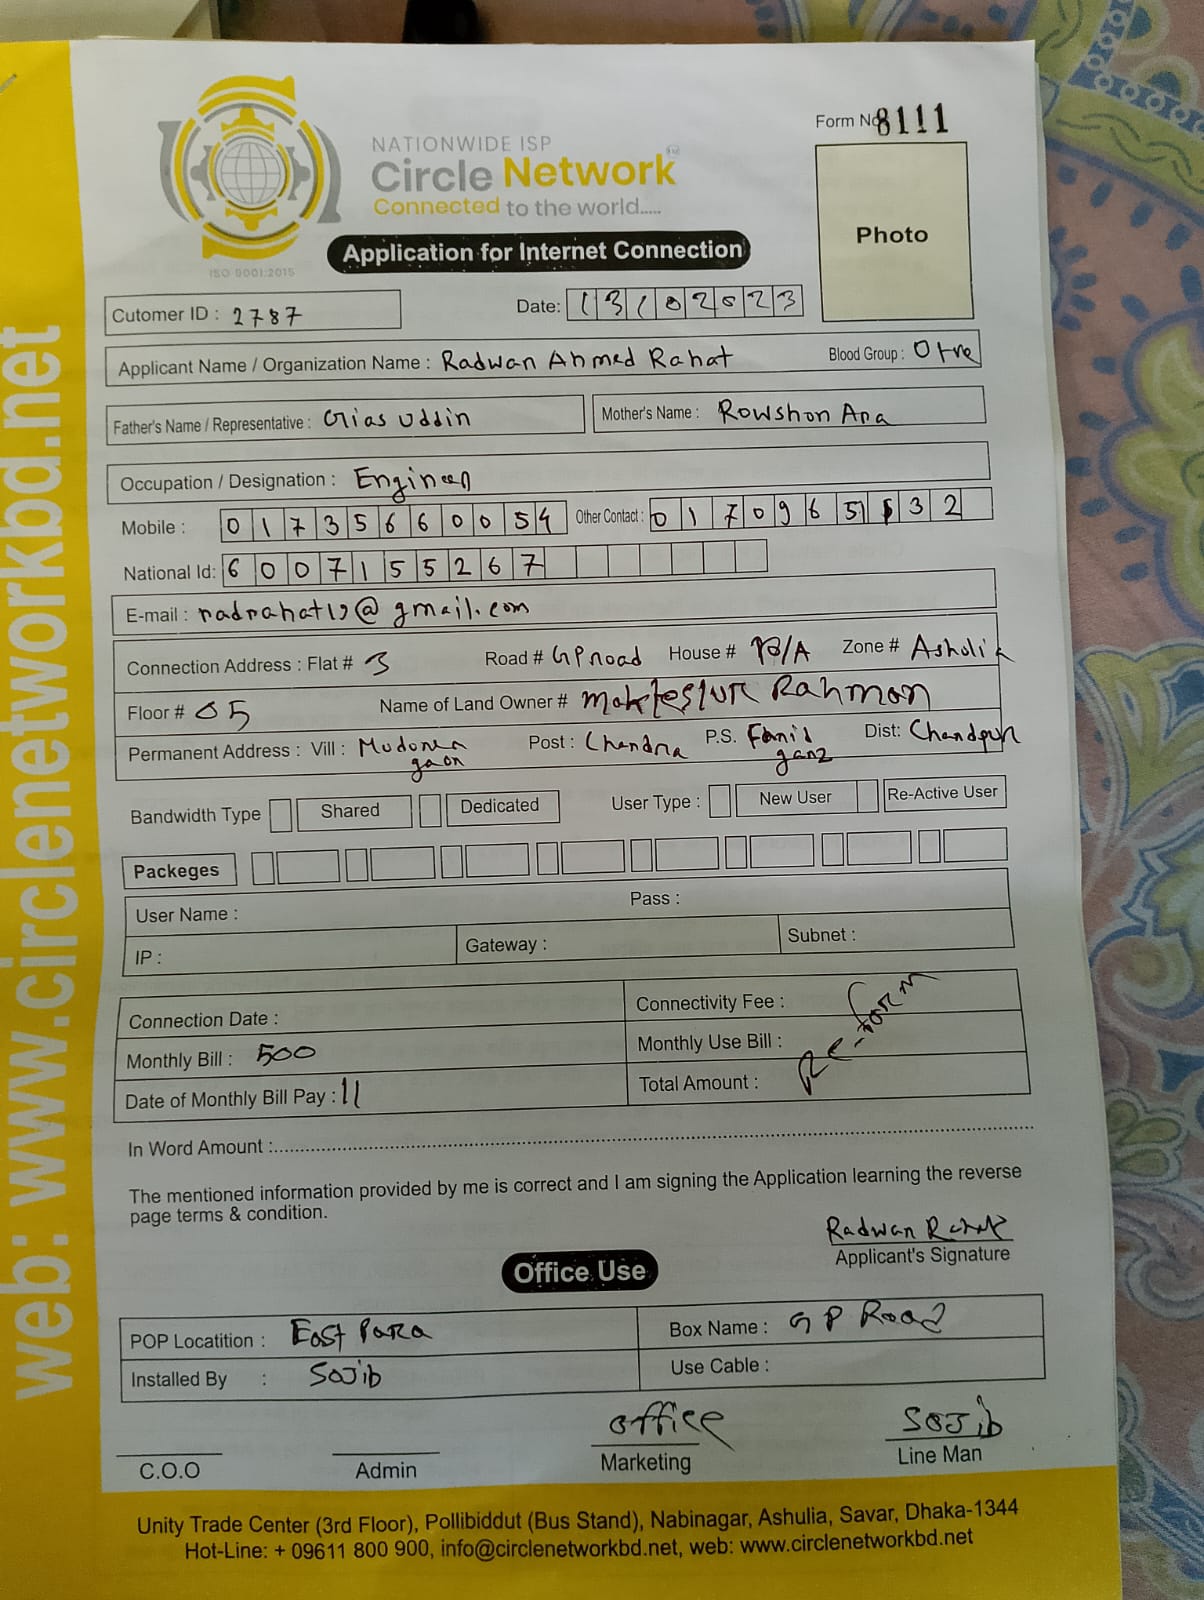 Form No 8111
NATIONWIDE ISP
Circle Network
Connected to the world.....
ISO 9001:2015
Photo
Application for Internet Connection
Cutomer ID : 2787
Date: 13/02023
Applicant Name / Organization Name : Radwan Ahmed Rahat Blood Group : O+ve
Father's Name / Representative : Gias Uddin Mother's Name : Rowshon Ara
Occupation / Designation : Engineer
Mobile : 01735660054 Other Contact : 017096532
National Id: 6007155267
E-mail : radrahat19@gmail.com
Connection Address : Flat # 3 Road # GP road House # /A Zone # Asholia
Floor # 05 Name of Land Owner # Rahman
Permanent Address : Vill : Mudoner gaon Post : Chandra P.S. Farid ganz Dist: Chandpur
Bandwidth Type Shared Dedicated User Type : New User Re-Active User
Packeges
User Name : Pass :
IP : Gateway : Subnet :
Connection Date : Connectivity Fee :
Monthly Bill : 500 Monthly Use Bill :
Date of Monthly Bill Pay : 11 Total Amount :
Re-form
In Word Amount :
The mentioned information provided by me is correct and I am signing the Application learning the reverse
page terms & condition.
Radwan Rahat
Applicant's Signature
Office Use
POP Locatition : East Para Box Name : GP Road
Installed By : Sojib Use Cable :
office Sojib
C.O.O Admin Marketing Line Man
Unity Trade Center (3rd Floor), Pollibiddut (Bus Stand), Nabinagar, Ashulia, Savar, Dhaka-1344
Hot-Line: + 09611 800 900, info@circlenetworkbd.net, web: www.circlenetworkbd.net
web: www.circlenetworkbd.net